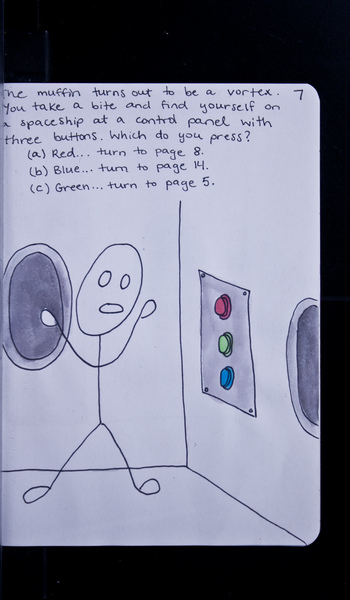 The muffin turns out to be a vortex. 7
You take a bite and find yourself on
a spaceship at a control panel with
three buttons. Which do you press?
(a) Red... turn to page 8.
(b) Blue... turn to page 14.
(c) Green... turn to page 5.